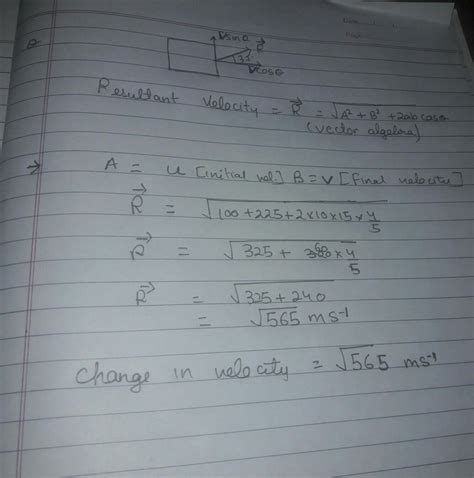 V sinθ
R⃗
37
V cosθ
Resultant velocity = R⃗ = √A² + B² + 2ab cosθ
(vector algebra)
→ A = u [initial vel] B = v [final velocity]
R⃗ = √100 + 225 + 2×10×15 × 4/5
R⃗ = √325 + 300 × 4/5
R⃗ = √325 + 240
= √565 ms⁻¹
Change in velocity = √565 ms⁻¹